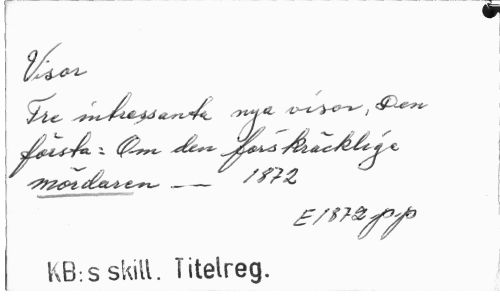 Visor
Tre intressanta nya visor, Den
första: Om den förskräcklige
mördaren — — 1872
E1872 pp
KB:s skill. Titelreg.